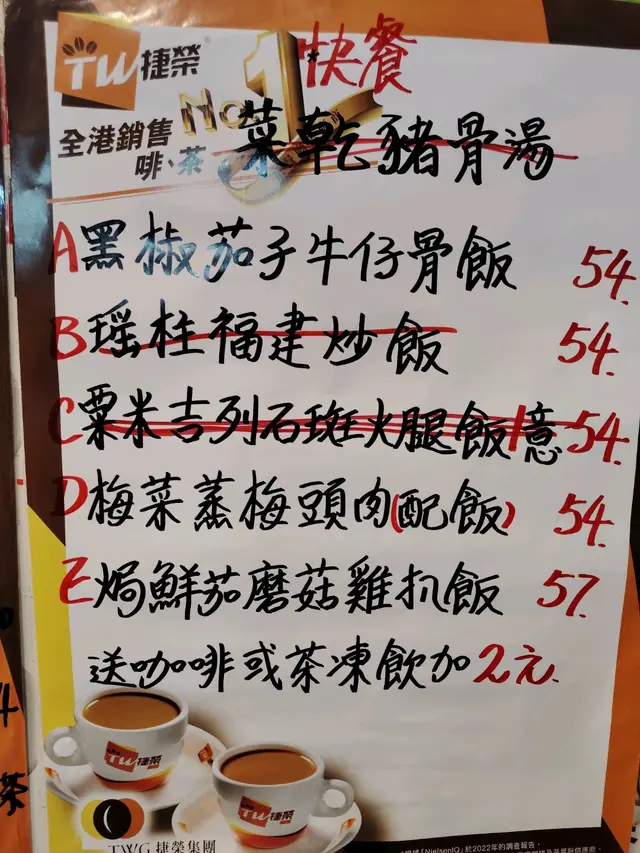 快餐
TW捷榮®
No.1
全港銷售
啡、茶
菜乾豬骨湯
A黑椒茄子牛仔骨飯 54.
B瑤柱福建炒飯 54.
C粟米吉列石斑火腿飯/意 54.
D梅菜蒸梅頭肉(配飯) 54.
E焗鮮茄磨菇雞扒飯 57.
送咖啡或茶凍飲加2元.
TW捷榮
TW捷榮
TWG 捷榮集團
「NielsenIQ」於2022年的調查報告,
茶